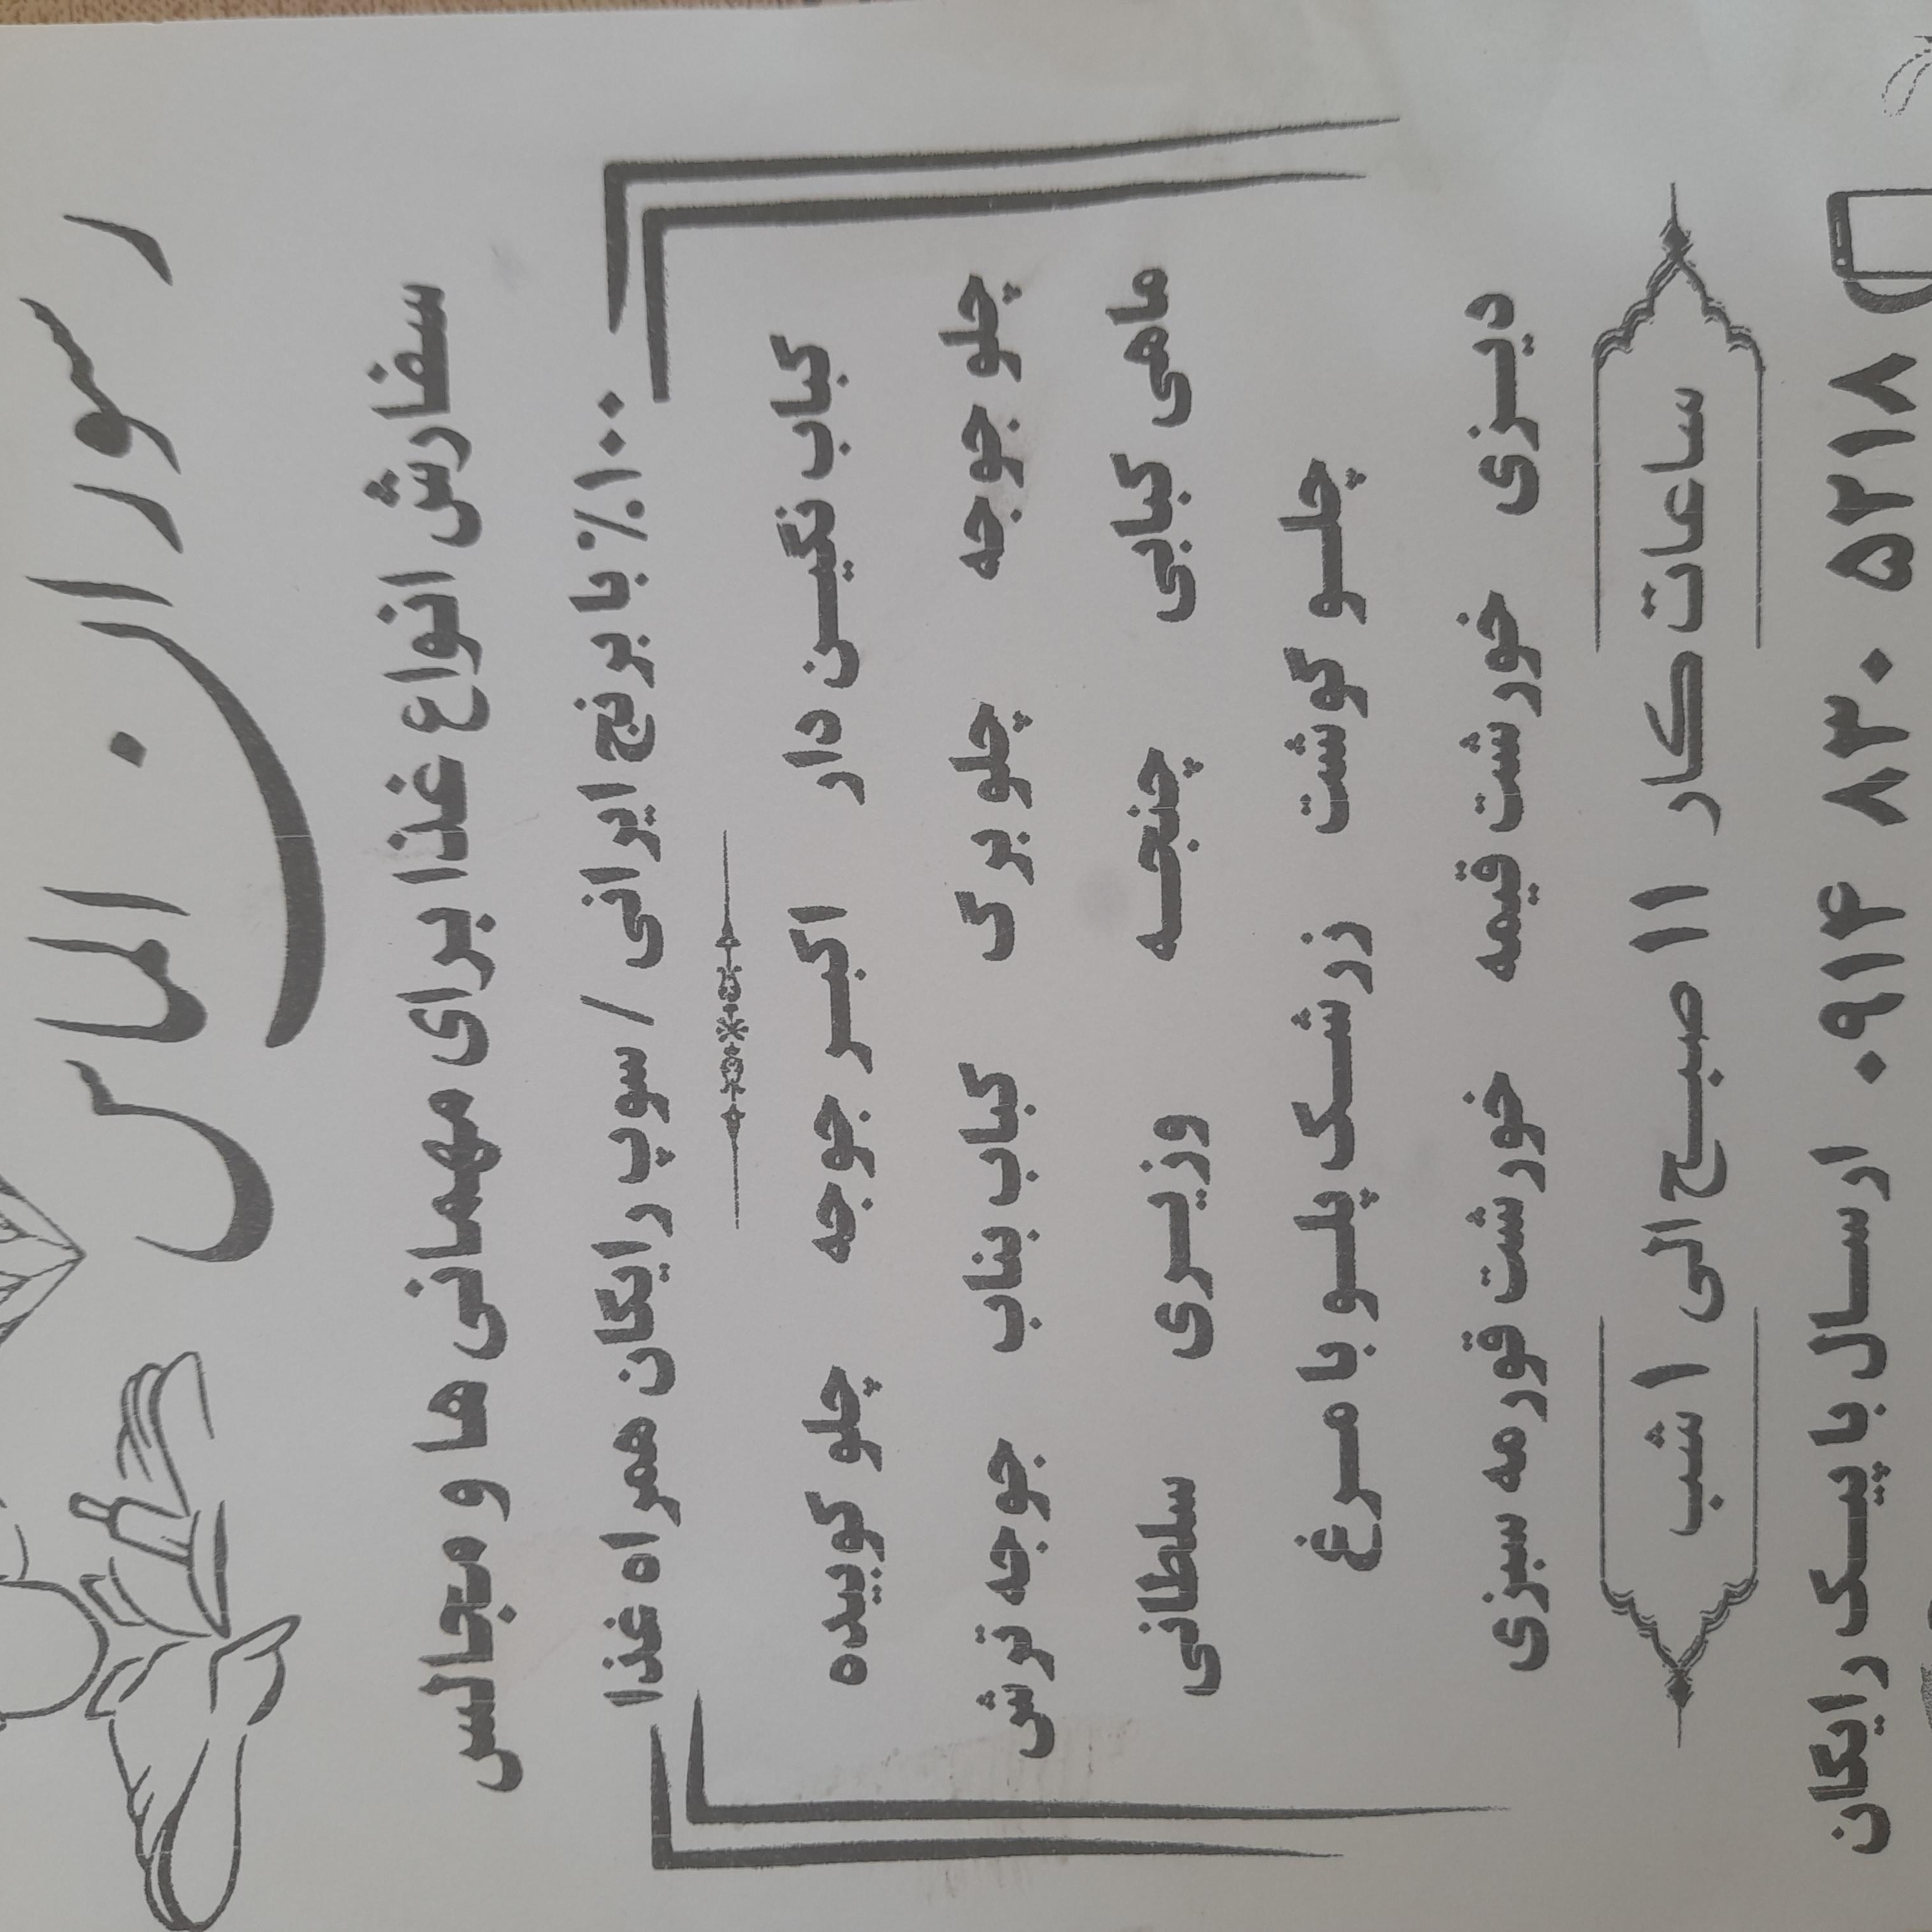 رستوران الماس
سفارش انواع غذا برای مهمانی ها و مجالس
۱۰۰٪ با برنج ایرانی / سوپ رایگان همراه غذا
کباب نگین دار اکبر جوجه چلو کوبیده
چلو جوجه چلو برگ کباب بناب جوجه ترش
ماهی کبابی چنجه وزیری سلطانی
چلو گوشت زرشک پلو با مرغ
دیزی خورشت قیمه خورشت قورمه سبزی
ساعات کار ۱۱ صبح الی ۱ شب
۰۹۱۴ ۸۳۰ ۵۲۱۸ ارسال با پیک رایگان